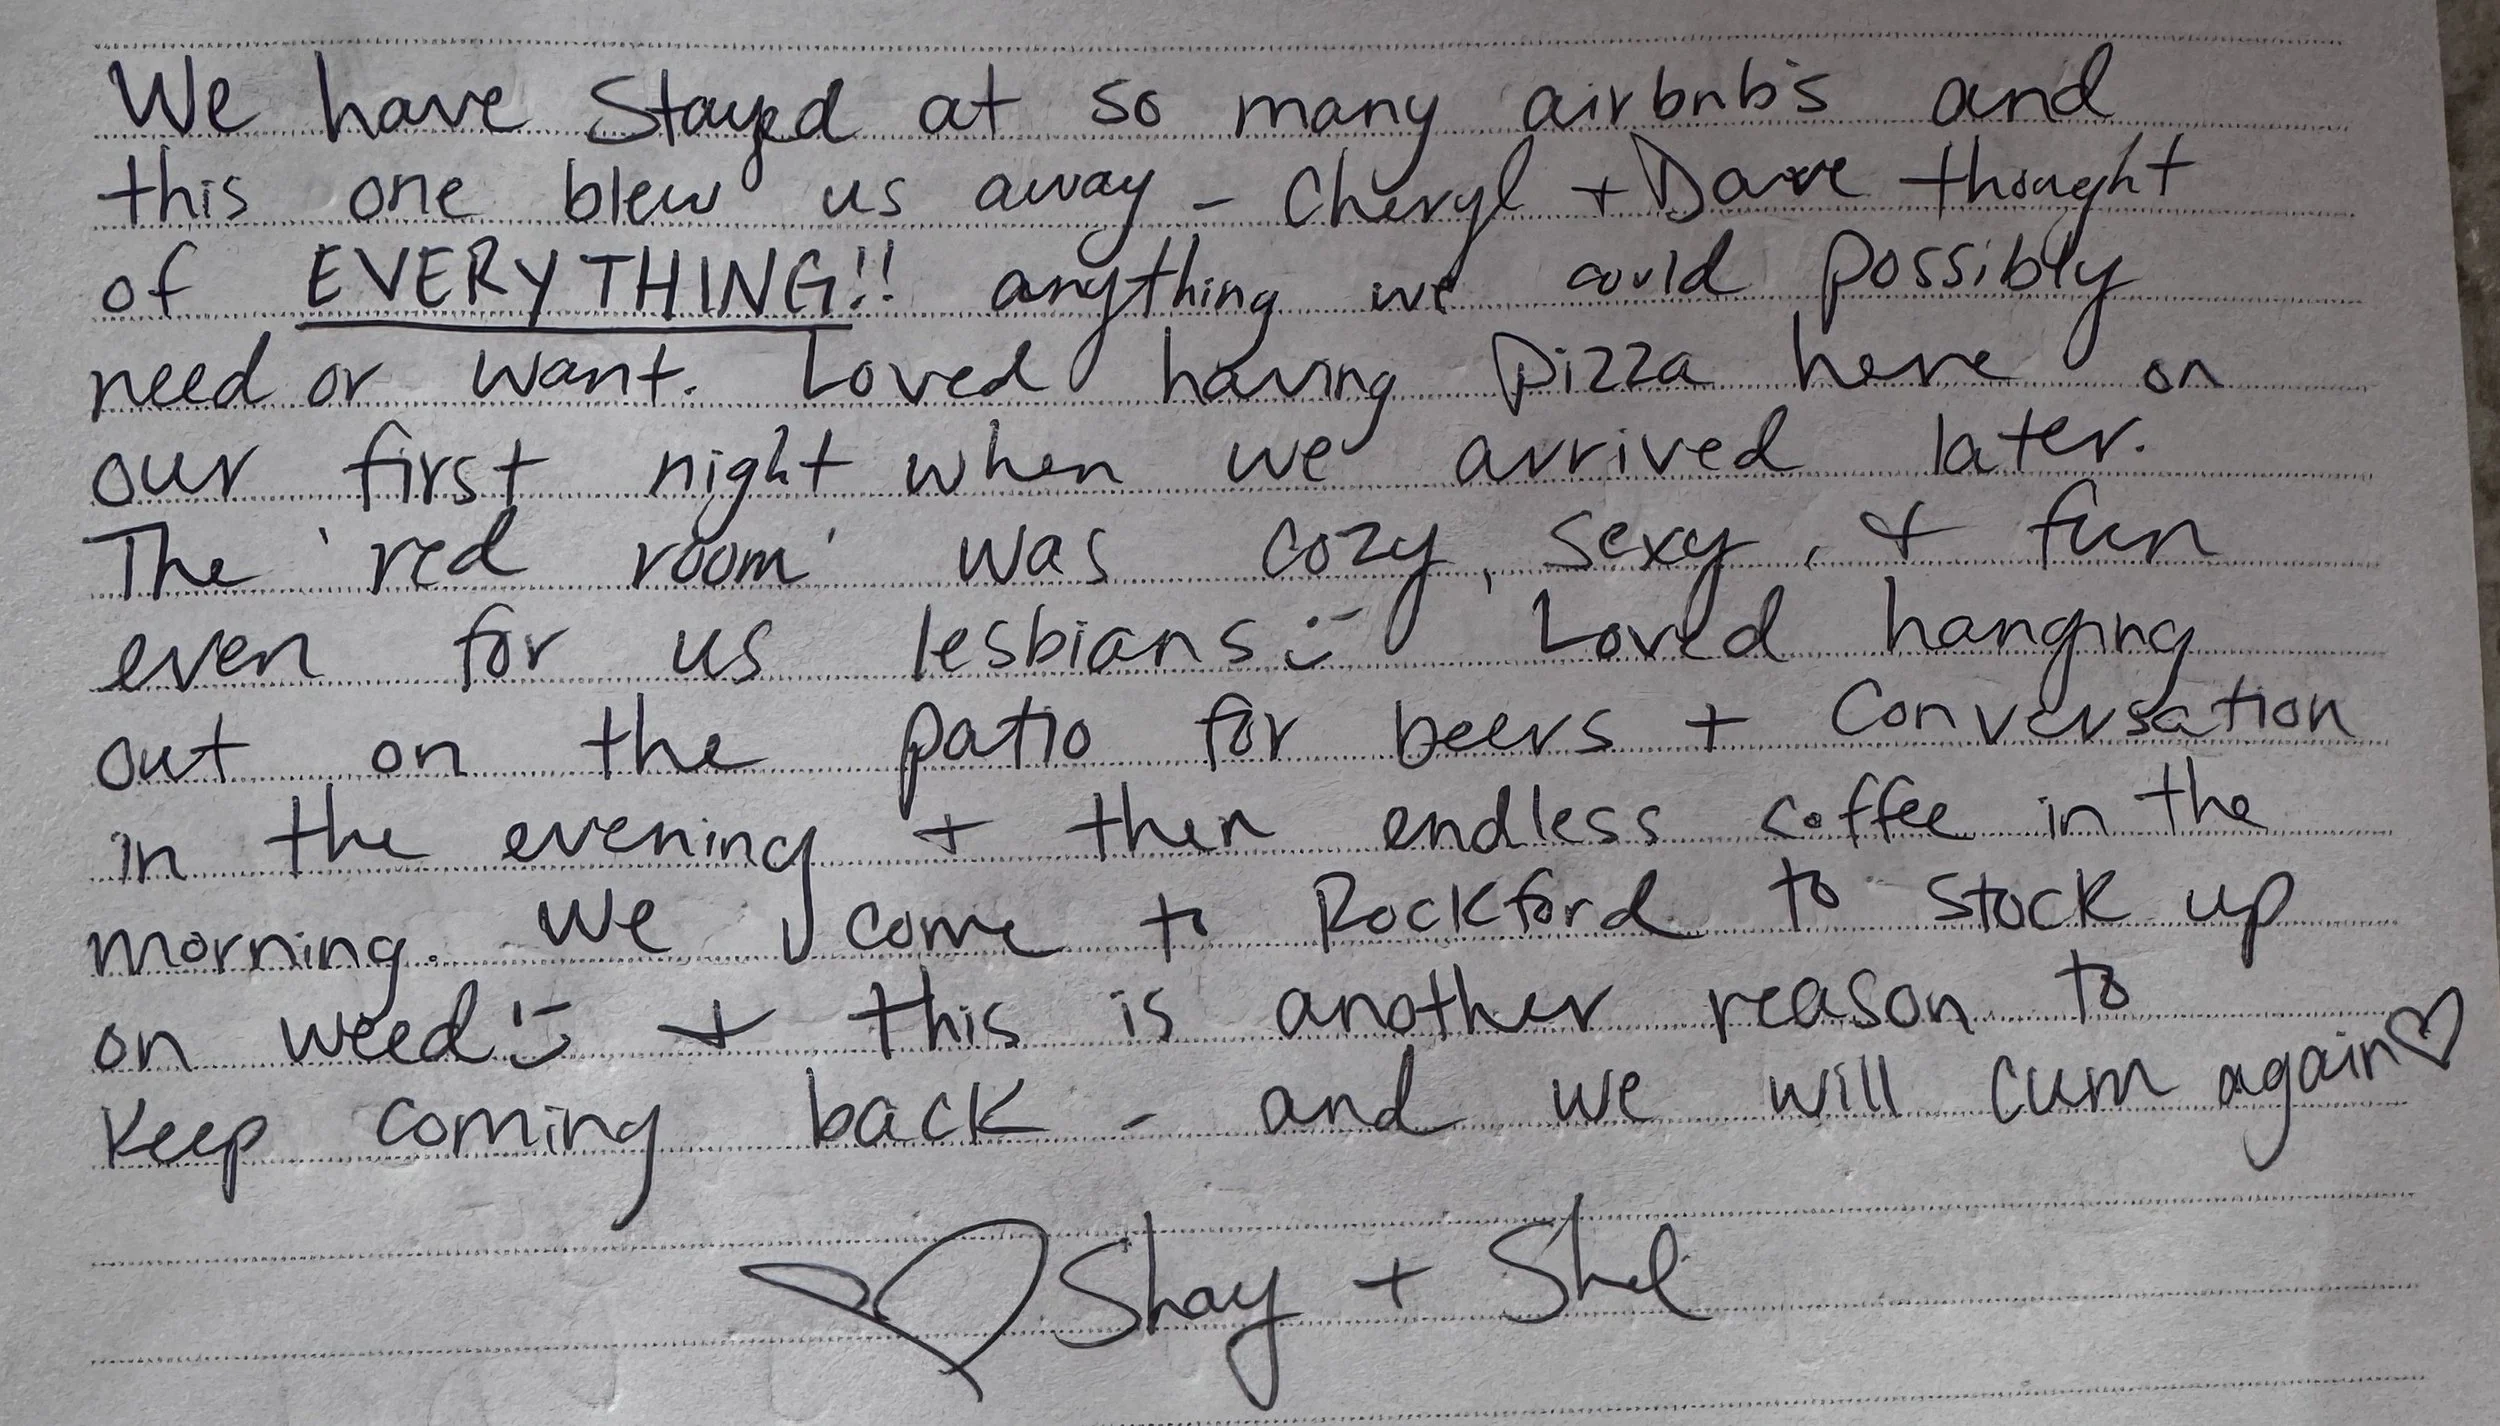 We have stayed at so many airbnb's and
this one blew us away - Cheryl + Dave thought
of EVERYTHING!! anything we could possibly
need or want. Loved having pizza here on
our first night when we arrived later.
The 'red room' was cozy, sexy, + fun
even for us lesbians :) Loved hanging
out on the patio for beers + conversation
in the evening + then endless coffee in the
morning. We come to Rockford to stock up
on weed :) + this is another reason to
keep coming back - and we will cum again ♡
♡ Shay + Shel